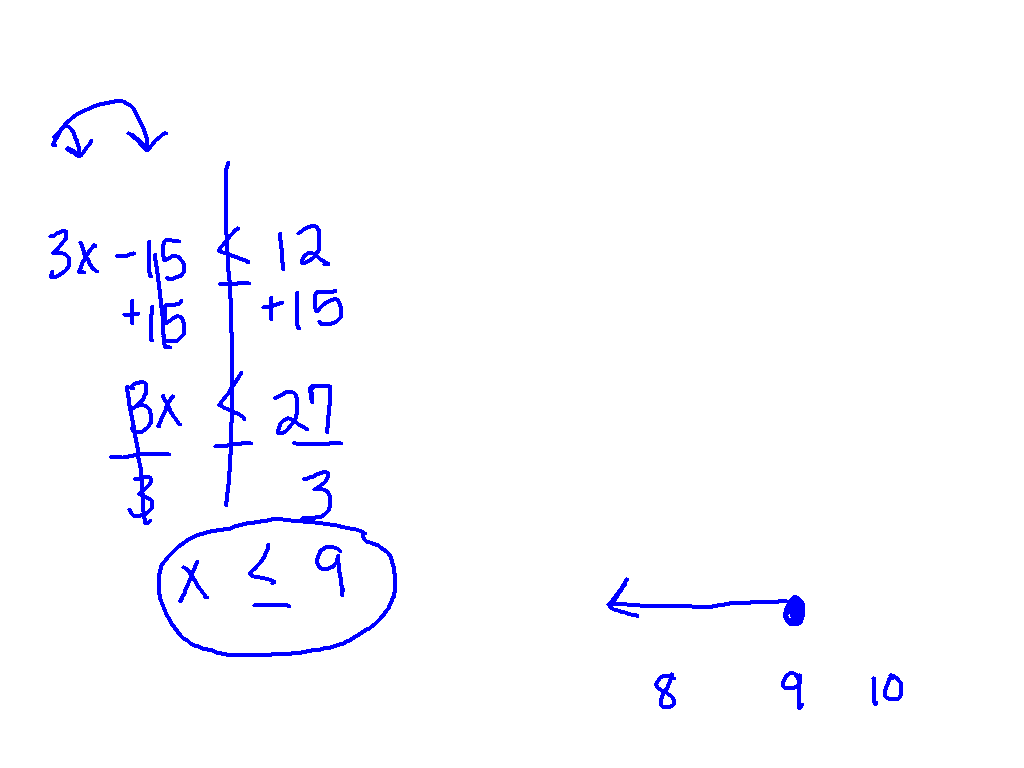 3x - 15 ≤ 12
+15 +15
3x ≤ 27
3 3
x ≤ 9
8 9 10